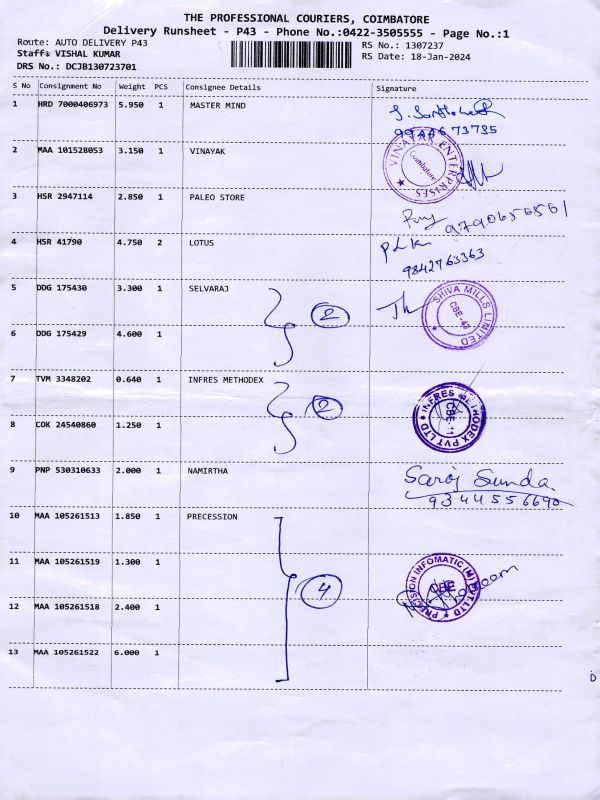 THE PROFESSIONAL COURIERS, COIMBATORE
Delivery Runsheet - P43 - Phone No.:0422-3505555 - Page No.:1
Route: AUTO DELIVERY P43 RS No.: 1307237
Staff: VISHAL KUMAR RS Date: 18-Jan-2024
DRS No.: DCJB130723701
S No Consignment No Weight PCS Consignee Details Signature
1 HRD 7000406973 5.950 1 MASTER MIND
9944673735
2 MAA 101528053 3.150 1 VINAYAK VINAYAK ENTERPRISES Coimbatore
3 HSR 2947114 2.850 1 PALEO STORE
9790656561
4 HSR 41790 4.750 2 LOTUS
9842763363
5 DDG 175430 3.300 1 SELVARAJ 2 SHIVA MILLS LIMITED CBE-43
6 DDG 175429 4.600 1
7 TVM 3348202 0.640 1 INFRES METHODEX 2 INFRES METHODEX PVT LTD CBE-11
8 COK 24540860 1.250 1
9 PNP 530310633 2.000 1 NAMIRTHA Saroj Sunda.
9344556690
10 MAA 105261513 1.850 1 PRECESSION
11 MAA 105261519 1.300 1 4 PRECISION INFOMATIC (M) PVT LTD CBE
12 MAA 105261518 2.400 1
13 MAA 105261522 6.000 1
D